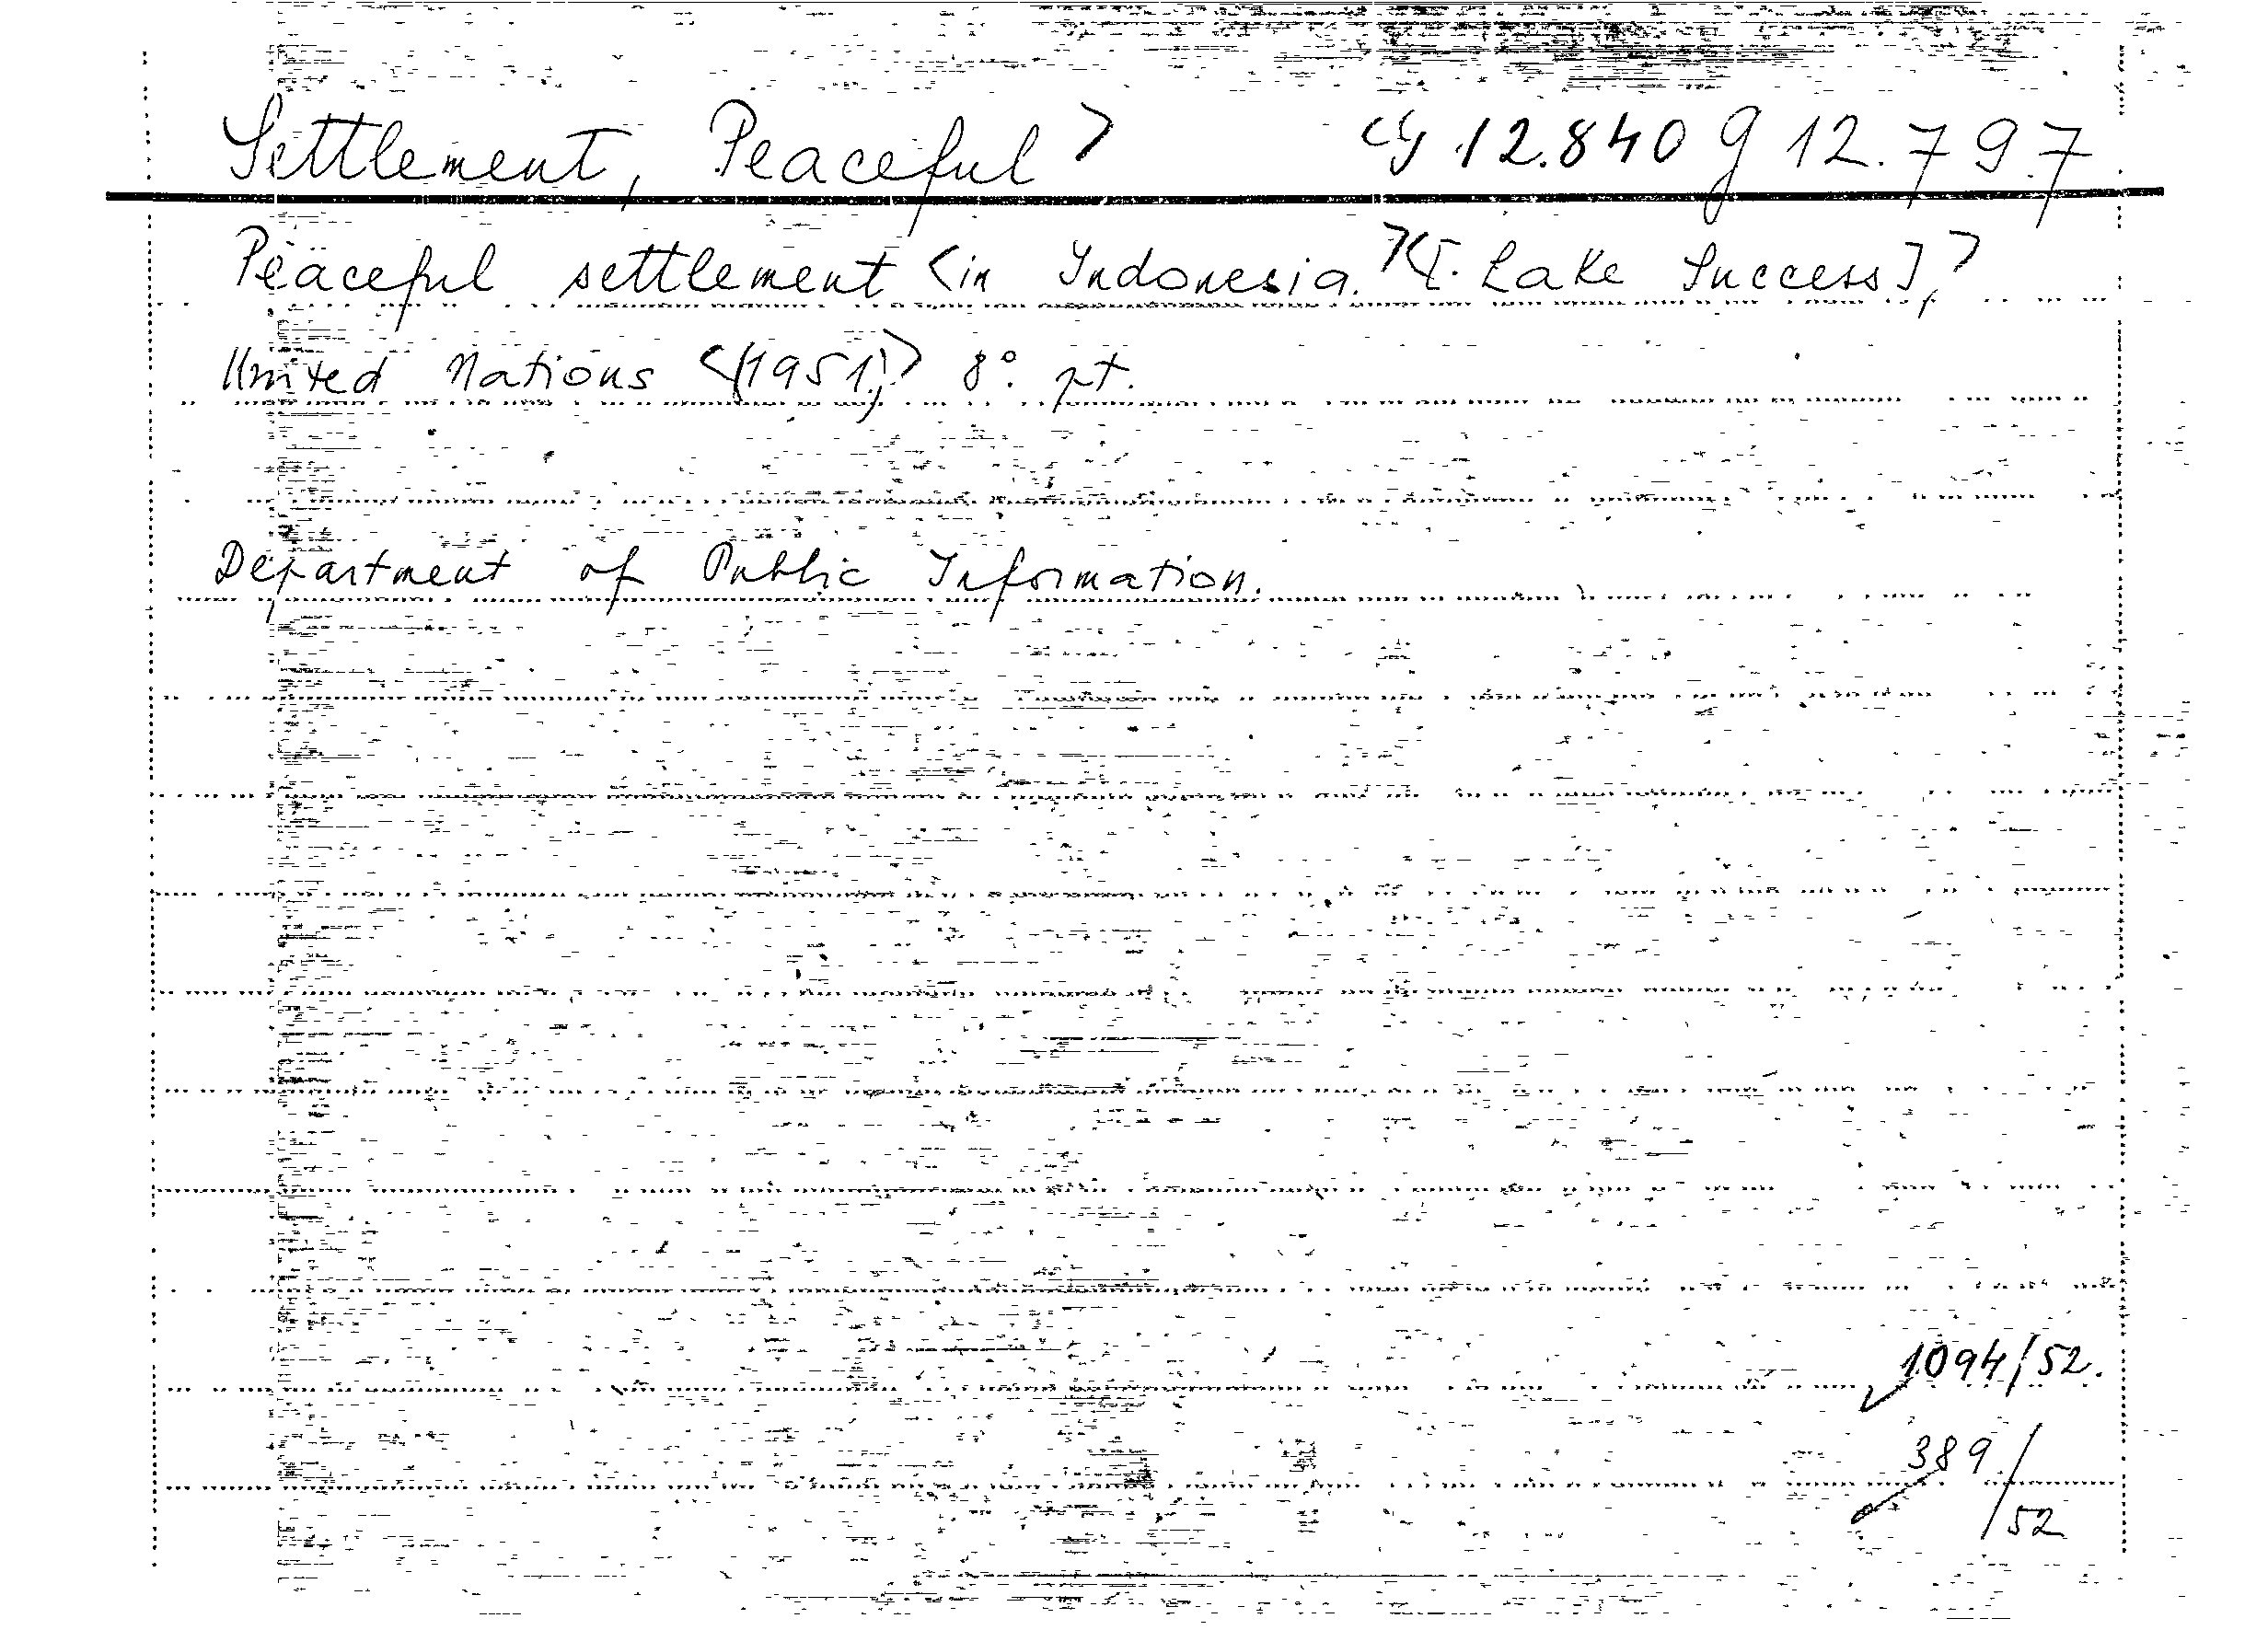 Settlement, Peaceful > cy 12.840 g 12.797
Peaceful settlement <in Indonesia.> <[. Lake Success],>
United Nations <(1951.)> 8° pt.
Department of Public Information.
1094/52.
389/52